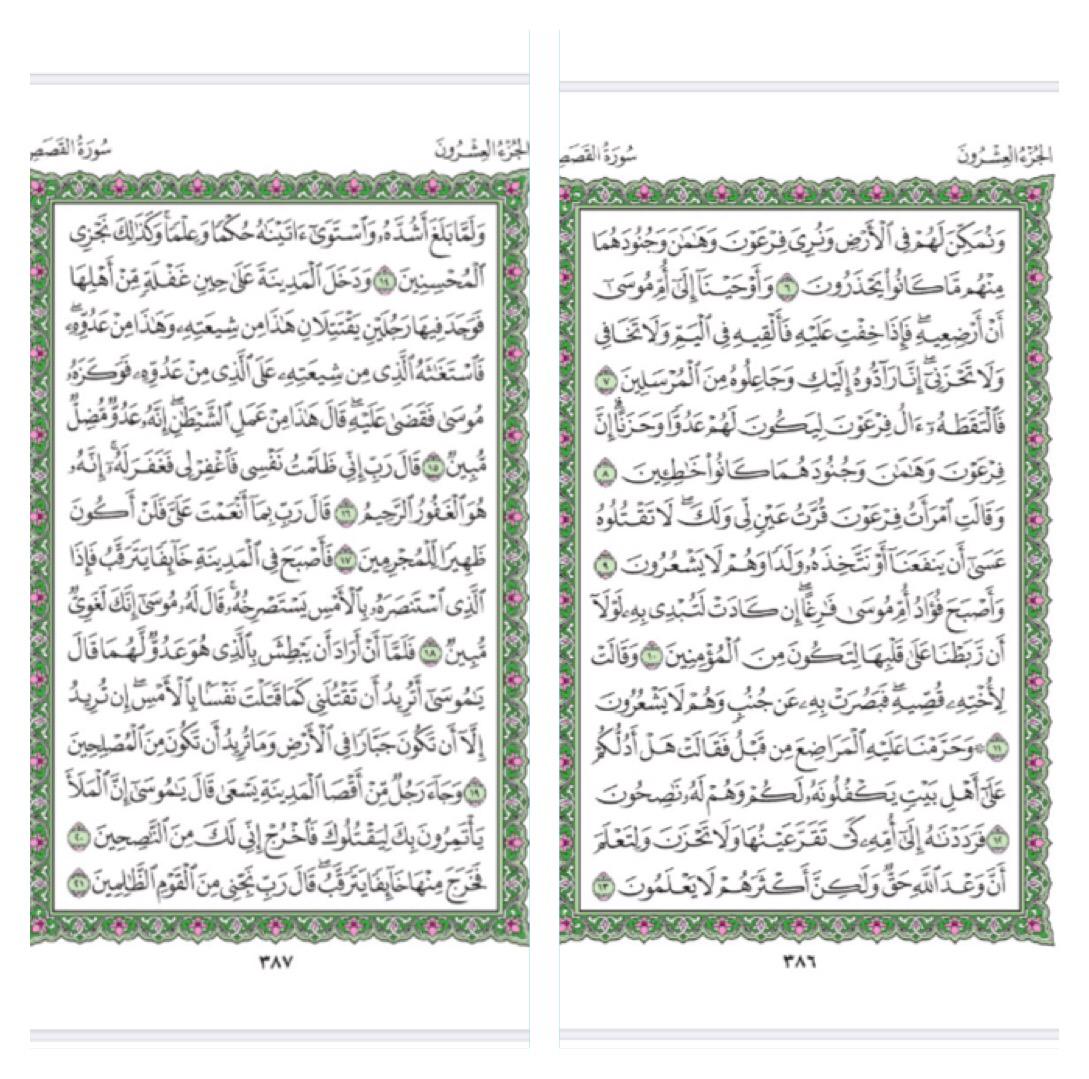 الجزء العشرون
سورة القصص
وَنُمَكِّنَ لَهُمْ فِي ٱلْأَرْضِ وَنُرِيَ فِرْعَوْنَ وَهَٰمَٰنَ وَجُنُودَهُمَا
مِنْهُم مَّا كَانُوا۟ يَحْذَرُونَ ٦ وَأَوْحَيْنَآ إِلَىٰٓ أُمِّ مُوسَىٰٓ
أَنْ أَرْضِعِيهِ ۖ فَإِذَا خِفْتِ عَلَيْهِ فَأَلْقِيهِ فِي ٱلْيَمِّ وَلَا تَخَافِي
وَلَا تَحْزَنِيٓ ۖ إِنَّا رَآدُّوهُ إِلَيْكِ وَجَاعِلُوهُ مِنَ ٱلْمُرْسَلِينَ ٧
فَٱلْتَقَطَهُۥٓ ءَالُ فِرْعَوْنَ لِيَكُونَ لَهُمْ عَدُوًّا وَحَزَنًا ۗ إِنَّ
فِرْعَوْنَ وَهَٰمَٰنَ وَجُنُودَهُمَا كَانُوا۟ خَٰطِـِٔينَ ٨
وَقَالَتِ ٱمْرَأَتُ فِرْعَوْنَ قُرَّتُ عَيْنٍ لِّي وَلَكَ ۖ لَا تَقْتُلُوهُ
عَسَىٰٓ أَن يَنفَعَنَآ أَوْ نَتَّخِذَهُۥ وَلَدًا وَهُمْ لَا يَشْعُرُونَ ٩
وَأَصْبَحَ فُؤَادُ أُمِّ مُوسَىٰ فَٰرِغًا ۖ إِن كَادَتْ لَتُبْدِي بِهِۦ لَوْلَآ
أَن رَّبَطْنَا عَلَىٰ قَلْبِهَا لِتَكُونَ مِنَ ٱلْمُؤْمِنِينَ ١٠ وَقَالَتْ
لِأُخْتِهِۦ قُصِّيهِ ۖ فَبَصُرَتْ بِهِۦ عَن جُنُبٍ وَهُمْ لَا يَشْعُرُونَ
١١ ۞ وَحَرَّمْنَا عَلَيْهِ ٱلْمَرَاضِعَ مِن قَبْلُ فَقَالَتْ هَلْ أَدُلُّكُمْ
عَلَىٰٓ أَهْلِ بَيْتٍ يَكْفُلُونَهُۥ لَكُمْ وَهُمْ لَهُۥ نَٰصِحُونَ
١٢ فَرَدَدْنَٰهُ إِلَىٰٓ أُمِّهِۦ كَيْ تَقَرَّ عَيْنُهَا وَلَا تَحْزَنَ وَلِتَعْلَمَ
أَنَّ وَعْدَ ٱللَّهِ حَقٌّ وَلَٰكِنَّ أَكْثَرَهُمْ لَا يَعْلَمُونَ ١٣
٣٨٦
الجزء العشرون
سورة القصص
وَلَمَّا بَلَغَ أَشُدَّهُۥ وَٱسْتَوَىٰٓ ءَاتَيْنَٰهُ حُكْمًا وَعِلْمًا ۚ وَكَذَٰلِكَ نَجْزِي
ٱلْمُحْسِنِينَ ١٤ وَدَخَلَ ٱلْمَدِينَةَ عَلَىٰ حِينِ غَفْلَةٍ مِّنْ أَهْلِهَا
فَوَجَدَ فِيهَا رَجُلَيْنِ يَقْتَتِلَانِ هَٰذَا مِن شِيعَتِهِۦ وَهَٰذَا مِنْ عَدُوِّهِۦ ۖ
فَٱسْتَغَٰثَهُ ٱلَّذِي مِن شِيعَتِهِۦ عَلَى ٱلَّذِي مِنْ عَدُوِّهِۦ فَوَكَزَهُۥ
مُوسَىٰ فَقَضَىٰ عَلَيْهِ ۖ قَالَ هَٰذَا مِنْ عَمَلِ ٱلشَّيْطَٰنِ ۖ إِنَّهُۥ عَدُوٌّ مُّضِلٌّ
مُّبِينٌ ١٥ قَالَ رَبِّ إِنِّي ظَلَمْتُ نَفْسِي فَٱغْفِرْ لِي فَغَفَرَ لَهُۥٓ ۚ إِنَّهُۥ
هُوَ ٱلْغَفُورُ ٱلرَّحِيمُ ١٦ قَالَ رَبِّ بِمَآ أَنْعَمْتَ عَلَيَّ فَلَنْ أَكُونَ
ظَهِيرًا لِّلْمُجْرِمِينَ ١٧ فَأَصْبَحَ فِي ٱلْمَدِينَةِ خَآئِفًا يَتَرَقَّبُ فَإِذَا
ٱلَّذِي ٱسْتَنصَرَهُۥ بِٱلْأَمْسِ يَسْتَصْرِخُهُۥ ۚ قَالَ لَهُۥ مُوسَىٰٓ إِنَّكَ لَغَوِيٌّ
مُّبِينٌ ١٨ فَلَمَّآ أَنْ أَرَادَ أَن يَبْطِشَ بِٱلَّذِي هُوَ عَدُوٌّ لَّهُمَا قَالَ
يَٰمُوسَىٰٓ أَتُرِيدُ أَن تَقْتُلَنِي كَمَا قَتَلْتَ نَفْسًۢا بِٱلْأَمْسِ ۖ إِن تُرِيدُ
إِلَّآ أَن تَكُونَ جَبَّارًا فِي ٱلْأَرْضِ وَمَا تُرِيدُ أَن تَكُونَ مِنَ ٱلْمُصْلِحِينَ
١٩ وَجَآءَ رَجُلٌ مِّنْ أَقْصَا ٱلْمَدِينَةِ يَسْعَىٰ قَالَ يَٰمُوسَىٰٓ إِنَّ ٱلْمَلَأَ
يَأْتَمِرُونَ بِكَ لِيَقْتُلُوكَ فَٱخْرُجْ إِنِّي لَكَ مِنَ ٱلنَّٰصِحِينَ ٢٠
فَخَرَجَ مِنْهَا خَآئِفًا يَتَرَقَّبُ ۖ قَالَ رَبِّ نَجِّنِي مِنَ ٱلْقَوْمِ ٱلظَّٰلِمِينَ ٢١
٣٨٧